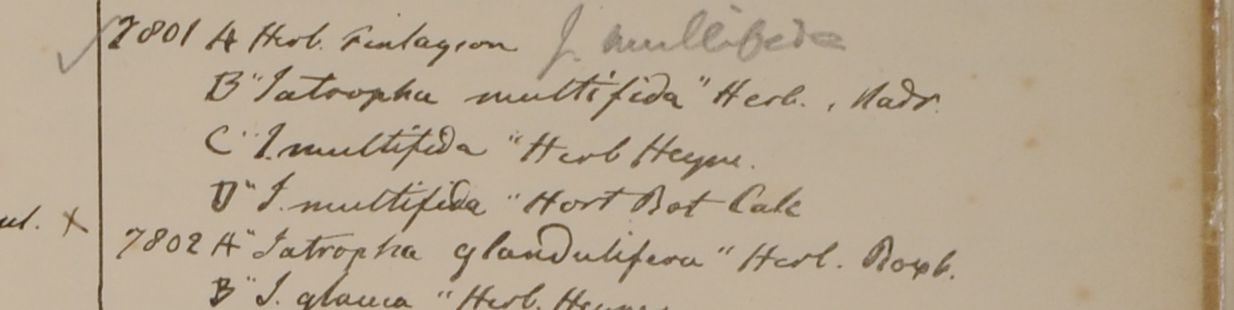 7801 A Herb. Finlayson J. multifida
B "Iatropha multifida" Herb. Madr.
C "I. multifida" Herb Heyne.
D "I. multifida" Hort Bot Calc
7802 A "Iatropha glandulifera" Herb. Roxb.
B "I. glauca" Herb. Heyne.